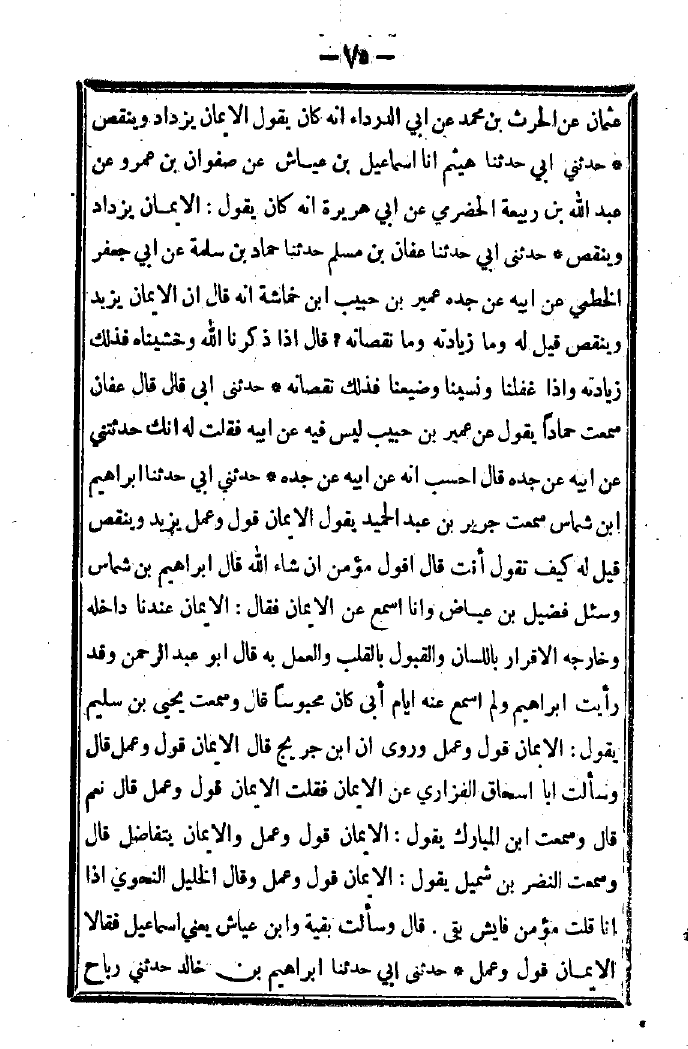 — ٧٥ —
عثمان عن الحرث بن محمد عن ابي الدرداء انه كان يقول الايمان يزداد وينقص
* حدثني ابي حدثنا هيثم انا اسماعيل بن عياش عن صفوان بن عمرو عن
عبد الله بن ربيعة الحضرمي عن ابي هريرة انه كان يقول : الايمان يزداد
وينقص * حدثنى ابي حدثنا عفان بن مسلم حدثنا حماد بن سلمة عن ابي جعفر
الخطمي عن ابيه عن جده عمير بن حبيب ابن خماشة انه قال ان الايمان يزيد
وينقص قيل له وما زيادته وما نقصانه ? قال اذا ذكرنا الله وخشيناه فذلك
زيادته واذا غفلنا ونسينا وضيعنا فذلك نقصانه * حدثنى ابى قال قال عفان
سمعت حماداً يقول عن عمير بن حبيب ليس فيه عن ابيه فقلت له انك حدثتني
عن ابيه عن جده قال احسب انه عن ابيه عن جده * حدثني ابي حدثنا ابراهيم
ابن شماس سمعت جرير بن عبد الحميد يقول الايمان قول وعمل يزيد وينقص
قيل له كيف تقول أنت قال اقول مؤمن ان شاء الله قال ابراهيم بن شماس
وسئل فضيل بن عياض وانا اسمع عن الايمان فقال : الايمان عندنا داخله
وخارجه الاقرار باللسان والقبول بالقلب والعمل به قال ابو عبد الرحمن وقد
رأيت ابراهيم ولم اسمع عنه ايام أبى كان محبوساً قال وسمعت يحيى بن سليم
يقول : الايمان قول وعمل وروى ان ابن جريج قال الايمان قول وعمل قال
وسألت ابا اسحاق الفزاري عن الايمان فقلت الايمان قول وعمل قال نعم
قال وسمعت ابن المبارك يقول : الايمان قول وعمل والايمان يتفاضل قال
وسمعت النضر بن شميل يقول : الايمان قول وعمل وقال الخليل النحوي اذا
انا قلت مؤمن فايش بقى . قال وسألت بقية وابن عياش يعني اسماعيل فقالا
الايمان قول وعمل * حدثنى ابي حدثنا ابراهيم بن خالد حدثني رباح